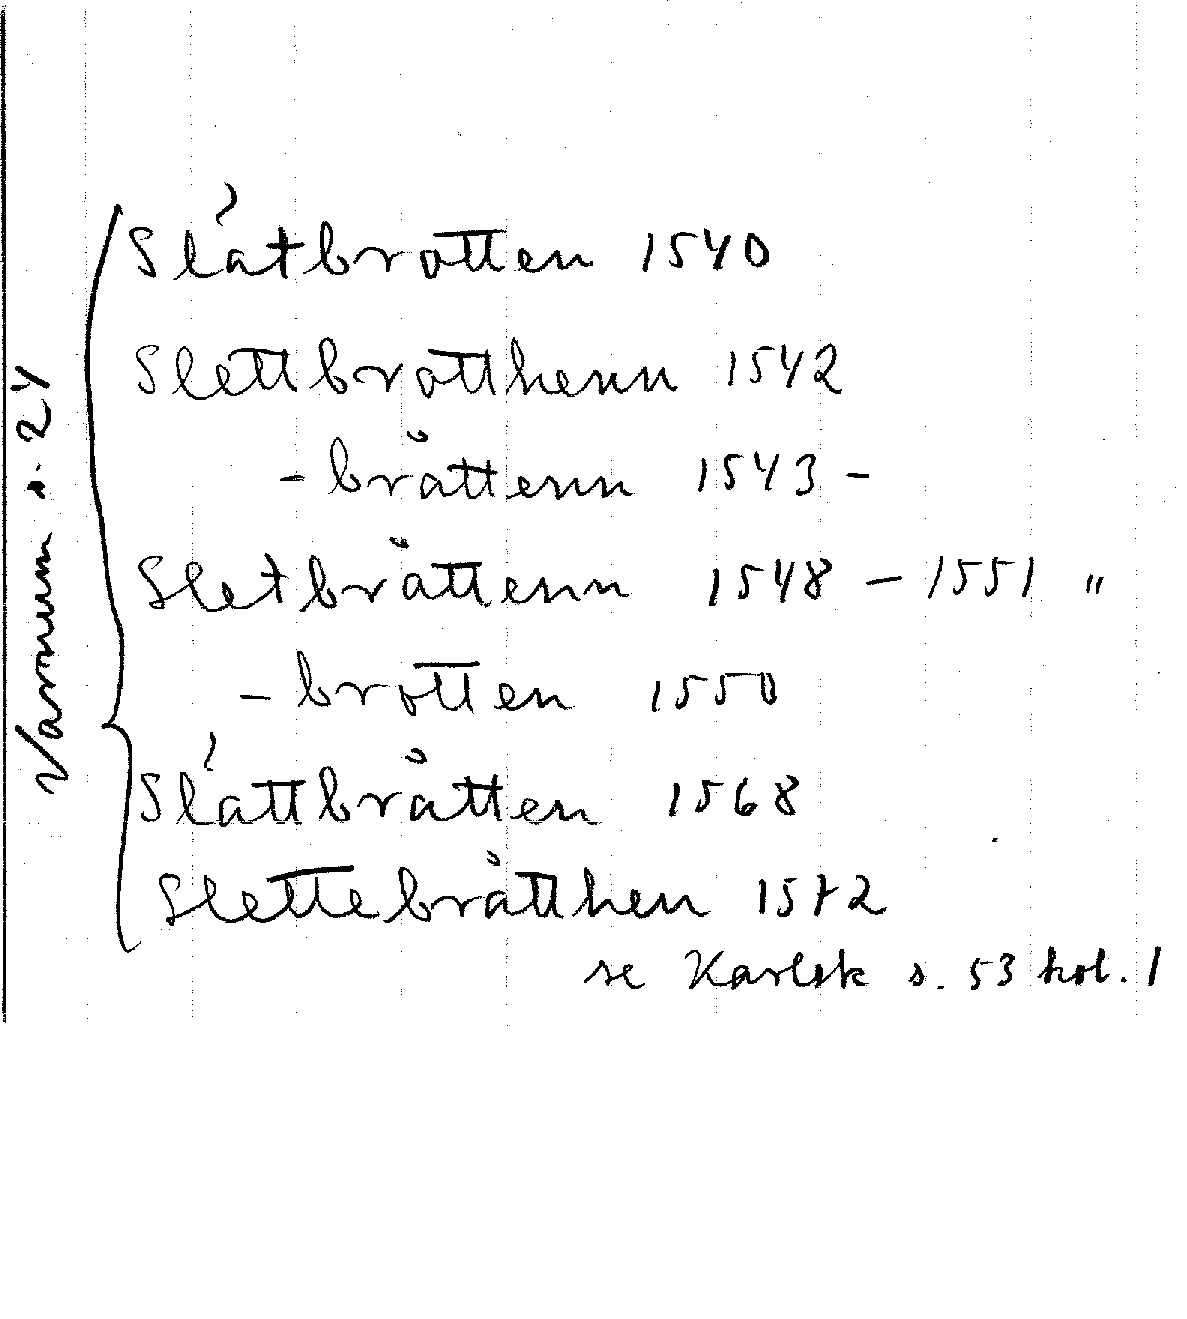 Varnum s. 24
Slåtbrotten 1540
Slettbrotthenn 1542
- bråttenn 1543 -
Sletbråttenn 1548 - 1551 "
- brotten 1550
Slåttbråtten 1568
Slettebråtthen 1572
se Karlsk s. 53 kol. 1